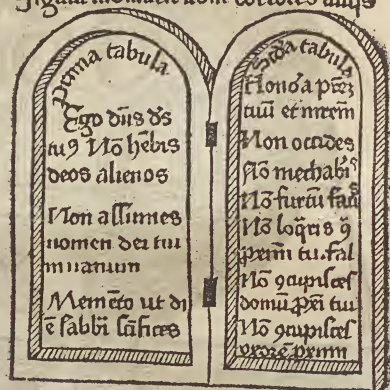 Prima tabula
Ego dn̄s ds̄
tuꝯ Nō hēbis
deos alienos
Non assumes
nomen dei tui
in uanum
Memēto ut di
ē sabbi sc̄ifices
Scd̄a tabula
Honōa prēz
tuū et mr̄em
Non occides
Nō mechabis
Nō furtū faci
Nō loq̄ris
tu. fal
Nō ꝯcupisces
domū tui
Nō ꝯcupisces